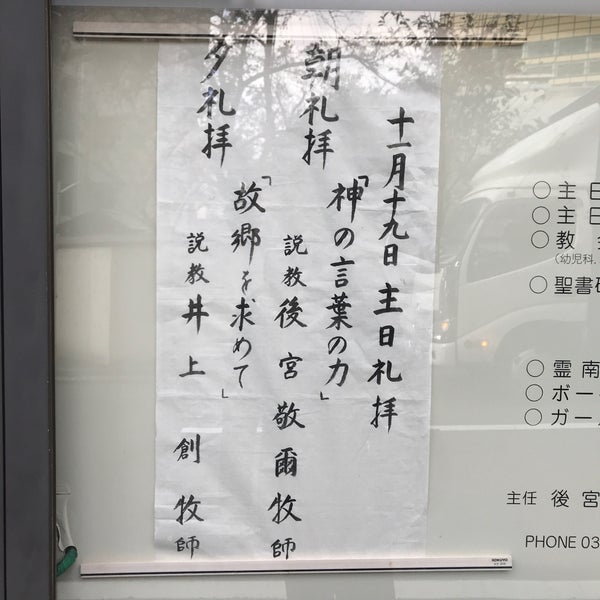 十一月十九日 主日礼拝
朝礼拝
「神の言葉の力」
説教 後宮敬爾牧師
夕礼拝
「故郷を求めて」
説教 井上 創牧師
○主日
○主日
○教会
(幼児科,
○聖書研
○霊南
○ボー
○ガール
主任 後宮
PHONE 03
KOKUYO